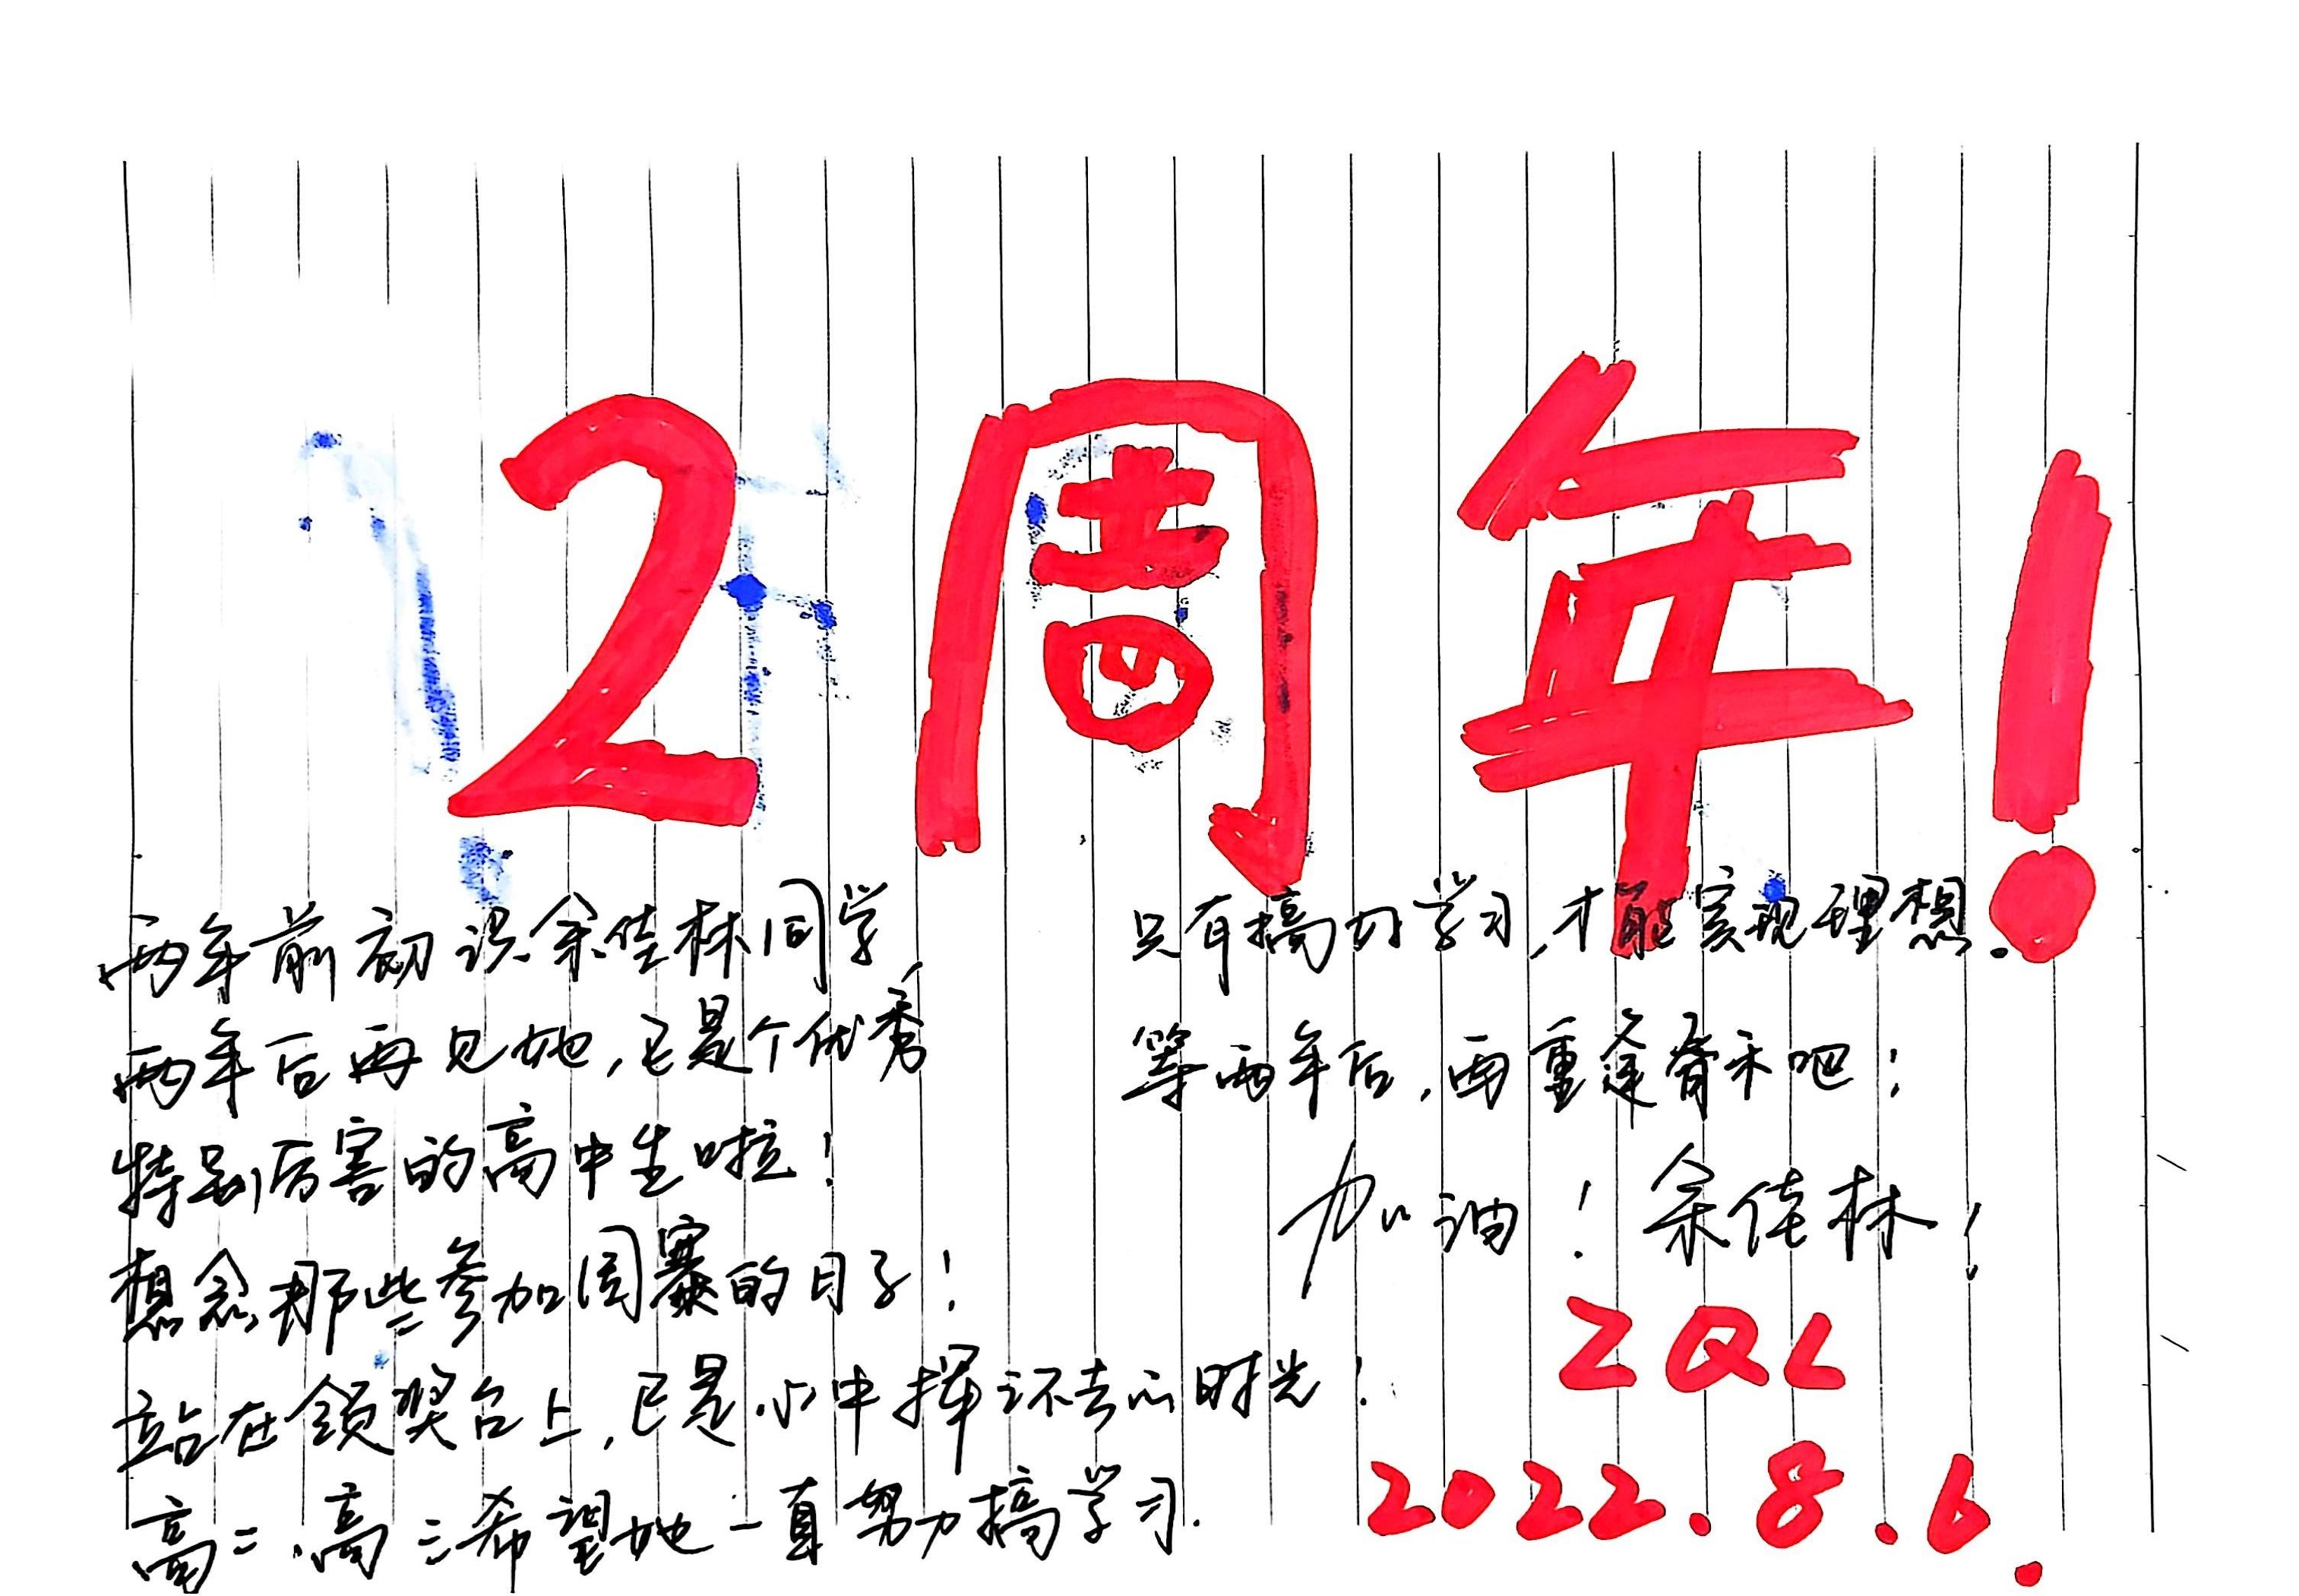 2周年!
两年前初识余佳林同学,
两年后再见她,已是个优秀
特别厉害的高中生啦!
想念那些参加国赛的日子!
站在领奖台上,已是心中挥还去的时光!
高二、高三希望她一直努力搞学习.
只有搞好学习,才能实现理想.
等两年后,再重逢 吧!
加油!余佳林!
ZQL
2022.8.6.